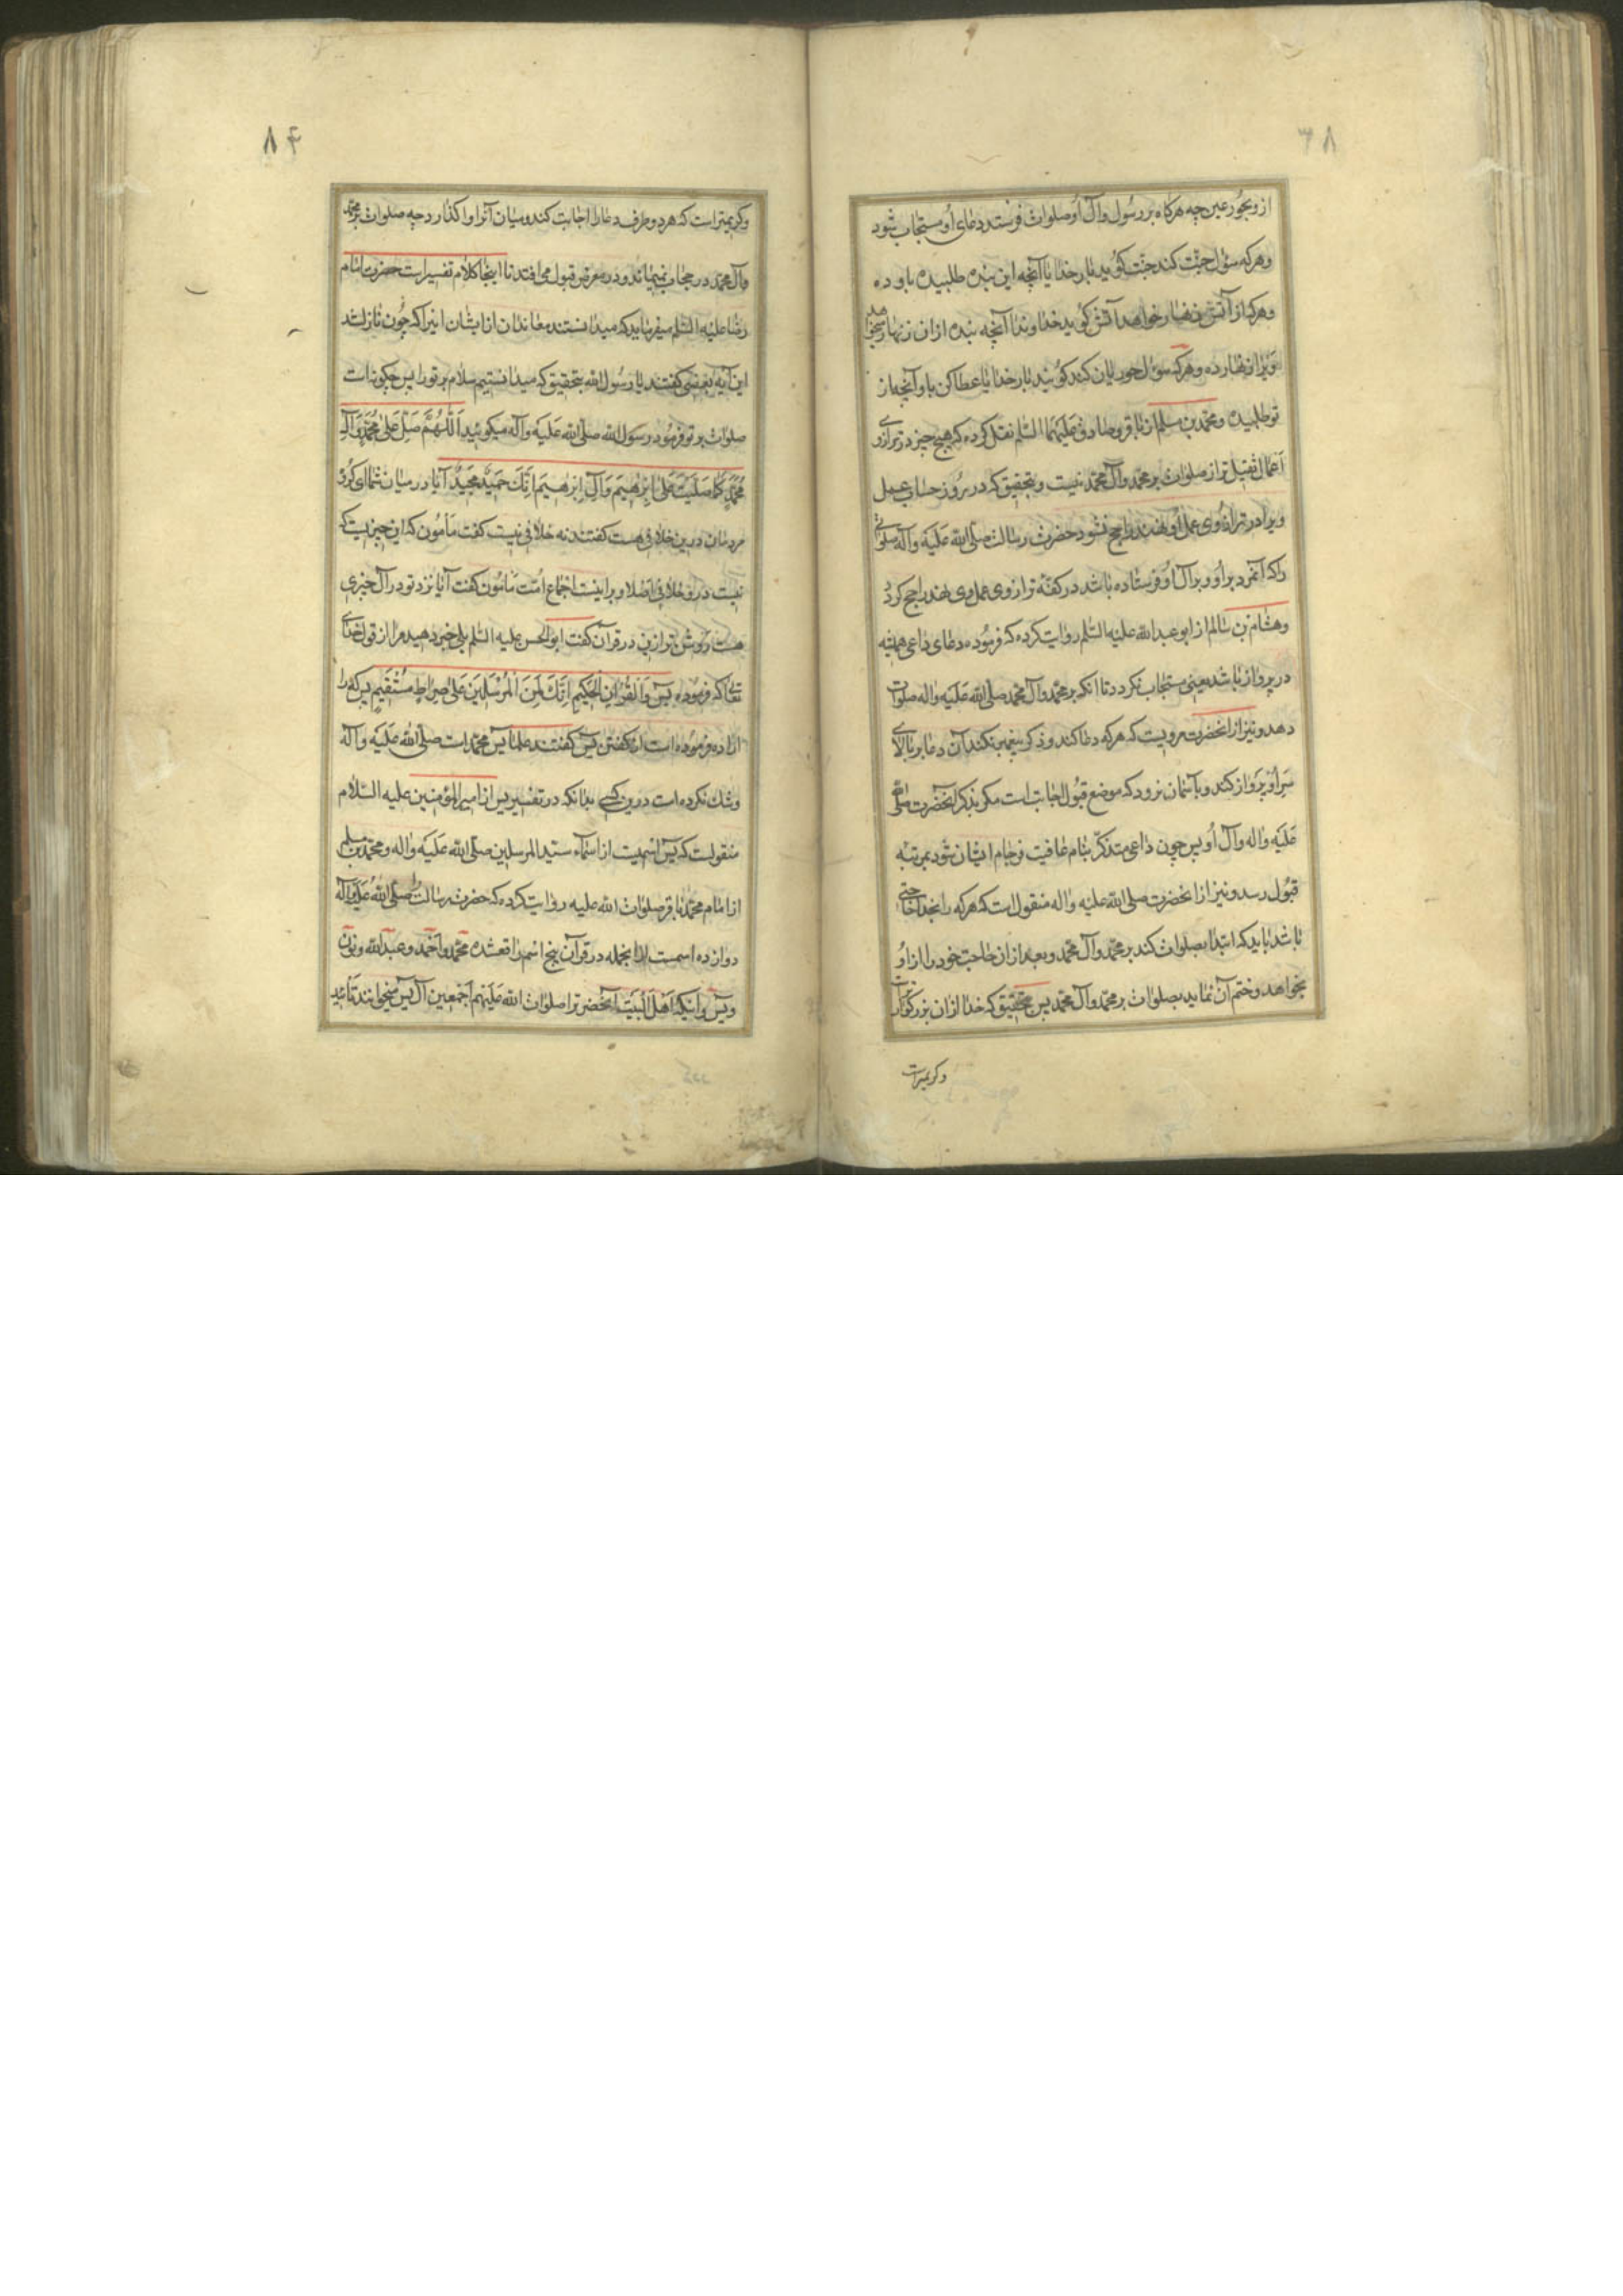 ۸۳
از وبجور عین چه هرکاه بر رسول وآل او صلوات فرستد دعای او مستجاب شود
وهرکه سؤل جنّت کند جنّت کوید بار خدایا آنچه این بنده طلبیده باو ده
وهرکه از آتش زنهار خواهد آتش کوید خداوندا آنچه بنده از ان زنهار میخواهد
ویرا زنهار ده وهرکه سؤل حوریان کند کویند بار خدایا عطا کن باو آنچه از
تو طلبیده ومحمد بن مسلم از باقر وصادق علیهما السلم نقل کرده که هیچ چیز در ترازوی
اعمال ثقیل تر از صلوات بر محمد وآل محمد نیست وبتحقیق که در روز حساب عمل
ویرا در ترازوی عمل او نهند راجح نشود حضرت رسالت صلی الله علیه وآله صلواتی
را که آنمرد بر او وبر آل او فرستاده باشد در کفّه ترازوی عمل وی نهند راجح کردد
وهشام بن سالم از ابو عبد الله علیه السلم روایت کرده که فرموده دعای داعی همیشه
در پرواز باشد یعنی مستجاب نکردد تا انکه بر محمد وآل محمد صلی الله علیه واله صلوات
دهد ونیز از انحضرت مرویست که هرکه دعا کند وذکر پیغمبر نکند آن دعا بر بالای
سر او پرواز کند وبآسمان نرود که موضع قبول اجابت است مکر بذکر آنحضرت صلی الله
علیه واله وآل او پس چون داعی متذکّر بنام عافیت فرجام ایشان شود بمرتبه
قبول رسد ونیز از انحضرت صلی الله علیه واله منقول است که هرکه را بخدا حاجتی
باشد باید که ابتدا بصلوات کند بر محمد وآل محمد وبعد از ان حاجت خود را از او
بخواهد وختم آن نماید بصلوات بر محمد وآل محمد پس بتحقیق که خدا از ان بزرکوارتر
وکریمتر است
۸۴
وکریمتر است که هر دو طرف دعا را اجابت کند ومیان آنرا واکذارد چه صلوات بر محمد
وآل محمد در حجاب نمیماند ودر معرض قبول می افتد تا اینجا کلام تفسیر است حضرت امام
رضا علیه السلم میفرماید که میدانستند معاندان از ایشان اینرا که چون نازل شد
این آیه بعضی کفتند یا رسول الله بتحقیق که میدانستیم سلام بر تو را پس چکونه است
صلوات بر تو فرمود رسول الله صلی الله علیه وآله میکویید اَللّٰهُمَّ صَلِّ عَلیٰ مُحَمَّدٍ وَآلِ
مُحَمَّدٍ کَمَا صَلَّیْتَ عَلیٰ اِبْرٰهیمَ وَآلِ اِبْرٰهیمَ اِنَّکَ حَمیدٌ مَجیدٌ آیا در میان شما ای کروه
مردمان درین خلافی هست کفتند نه خلافی نیست کفت مأمون که این چیزیست که
نیست درو خلافی اصلا وبر اینست اجماع امّت مأمون کفت آیا نزد تو در آل چیزی
هست روشن تر ازین در قرآن کفت ابو الحسن علیه السلم بلی خبر دهید مرا از قول خدای
تعالی که فرموده یٰس وَالْقُرْاٰنِ الْحَکیمِ اِنَّکَ لَمِنَ الْمُرْسَلینَ عَلیٰ صِرٰاطٍ مُسْتَقیمٍ پس که را
اراده فرموده است از کفتن یس کفتند علما یس محمد است صلی الله علیه وآله
وشک نکرده است درین کسی بدانکه در تفسیر یس از امیر المؤمنین علیه السلام
منقولست که یس اسمیست از اسماء سید المرسلین صلی الله علیه واله ومحمد بن مسلم
از امام محمد باقر صلوات الله علیه روایت کرده که حضرت رسالت صلی الله علیه وآله را
دوازده اسمست از انجمله در قرآن پنج اسم واقع شده محمد واحمد وعبد الله ونون
ویس واینکه اهل البیت آنحضرترا صلوات الله علیهم اجمعین آل یس میخوانند تأیید